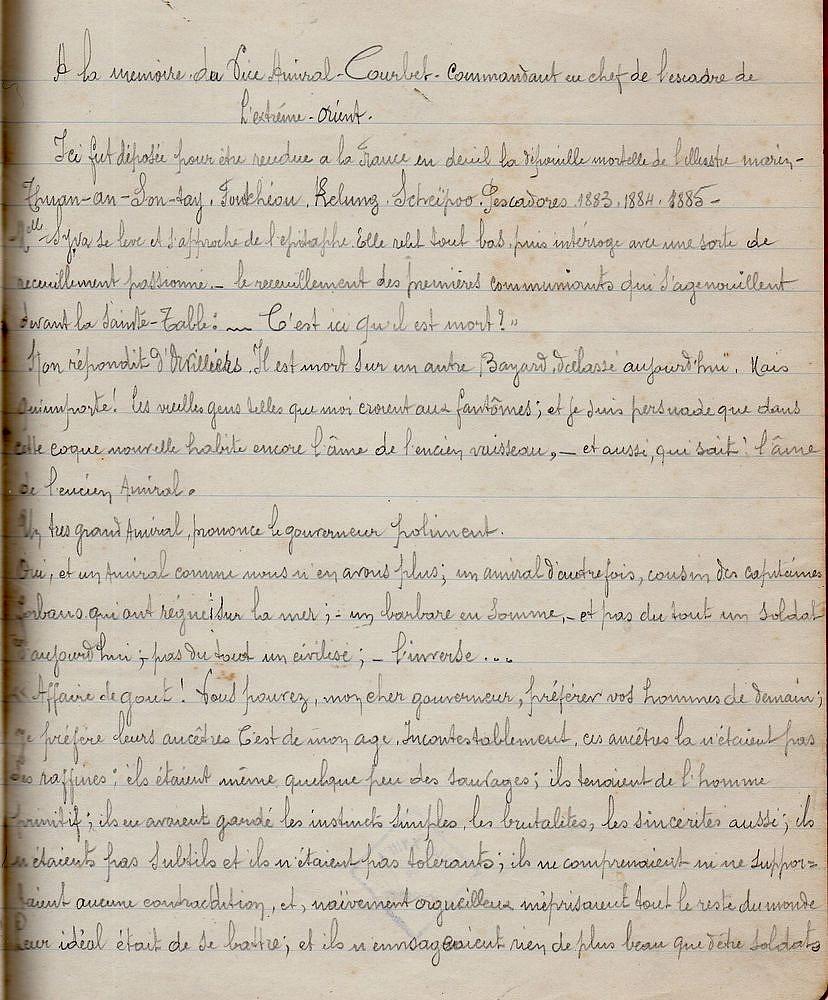 A la memoire. du Vice Amiral-Courbet- Commandant en chef de l'escadre de
L'extrême-Orient.
Ici fut déposée pour être rendue a la France en deuil la dépouille mortelle de l'illustre marin-
Thuan-an-Son-tay. Foutchéou. Kelung. Scheïpoo. Pescadores. 1883. 1884. 1885-
Melle Sylva se leve et s'approche de l'epitaphe. Elle relit tout bas, puis intérroge avec une sorte de
recueuillement passionné.- le receuillement des premières communiants qui s'agenouillent
devant la Sainte-Table: — C'est ici qu'il est mort?"
Non répondit d'Orvilliers. Il est mort sur un autre Bayard, déclassé aujourd'hui. Mais
qu'importe! Les vieilles gens telles que moi croient aux fantômes; et je suis persuade que dans
cette coque nouvelle habite encore l'âme de l'encien vaisseau,- et aussi, qui sait! l'âme
de l'encien Amiral.
Un tres grand Amiral, prononce le gouverneur poliment.
Oui, et un Amiral comme nous n'en avons plus; un amiral d'autrefois, cousin des capitaines
forbans qui ont reigné sur la mer;- un barbare en somme,- et pas du tout un soldat
d'aujourd'hui;- pas du tout un civilisé;- l'inverse...
« Affaire de gout! Vous pouvez, mon cher gouverneur, préférer vos hommes de demain;
Je préfère leurs ancêtres C'est de mon age. Incontestablement, ces ancêtres la n'étaient pas
des raffinés; ils étaient même quelque peu des sauvages; ils tenaient de l'homme
primitif; ils en avaient gardé les instincts simples, les brutalités, les sincerites aussi; ils
n'étaients pas subtils et ils n'étaient pas tolerants; ils ne comprenaient ni ne suppor=
taient aucune contradition, et, naïvement orgueilleux méprisaient tout le reste du monde
Leur idéal était de se battre; et ils n'envisageaient rien de plus beau que d'être soldats